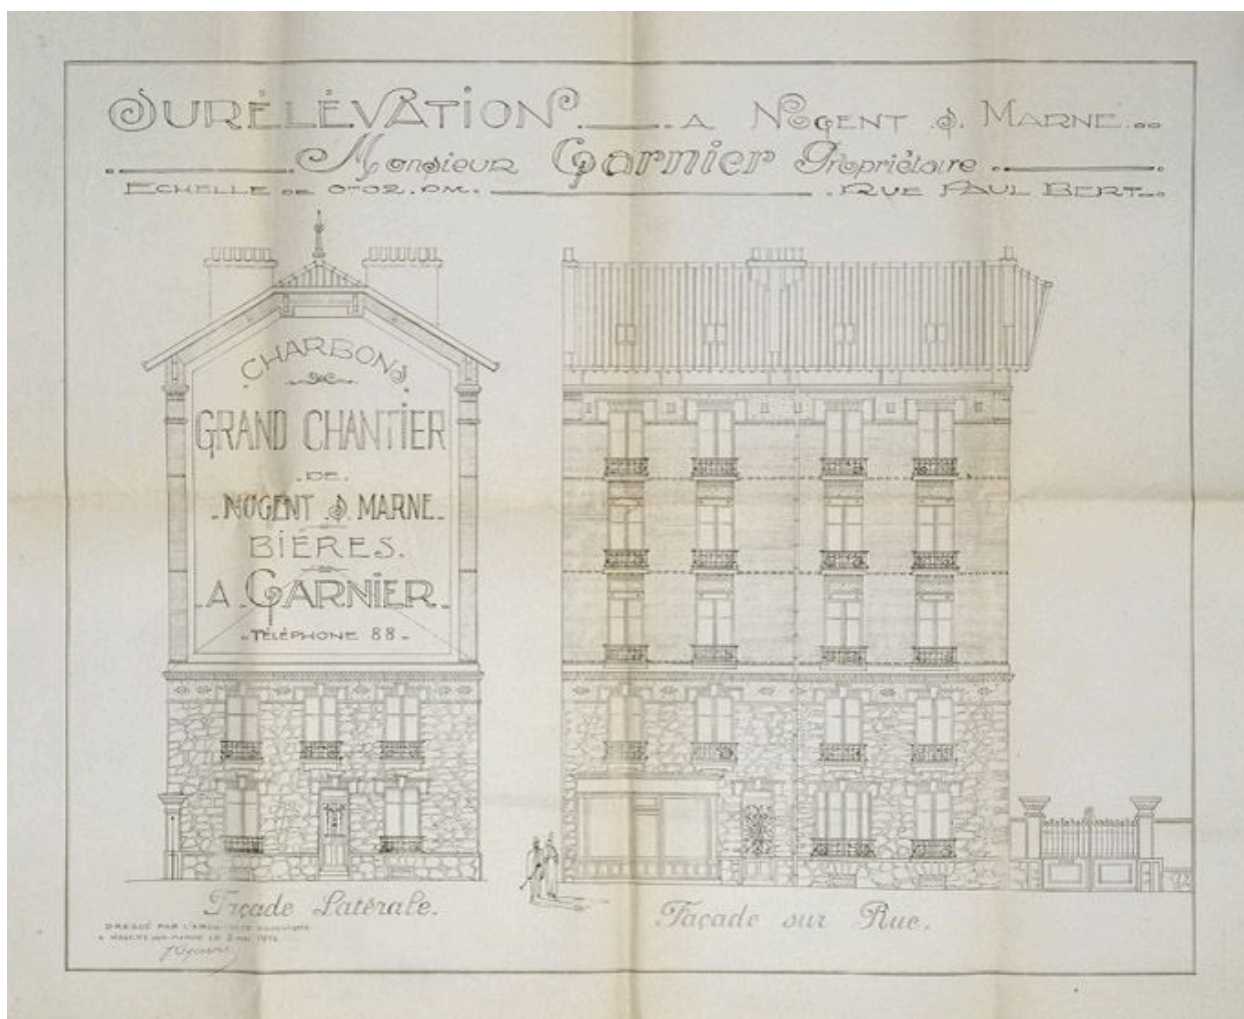 SURÉLÉVATION. A NOGENT S. MARNE.
Monsieur Garnier Propriétaire
ECHELLE DE 0m02.P.M. RUE PAUL BERT.
CHARBONS
GRAND CHANTIER
.DE.
NOGENT .S. MARNE.
BIÉRES.
A. GARNIER.
TÉLÉPHONE 88
Façade Latérale.
Façade sur Rue.
DRESSÉ PAR L'ARCHITECTE
A NOGENT SUR MARNE LE 2 MAI